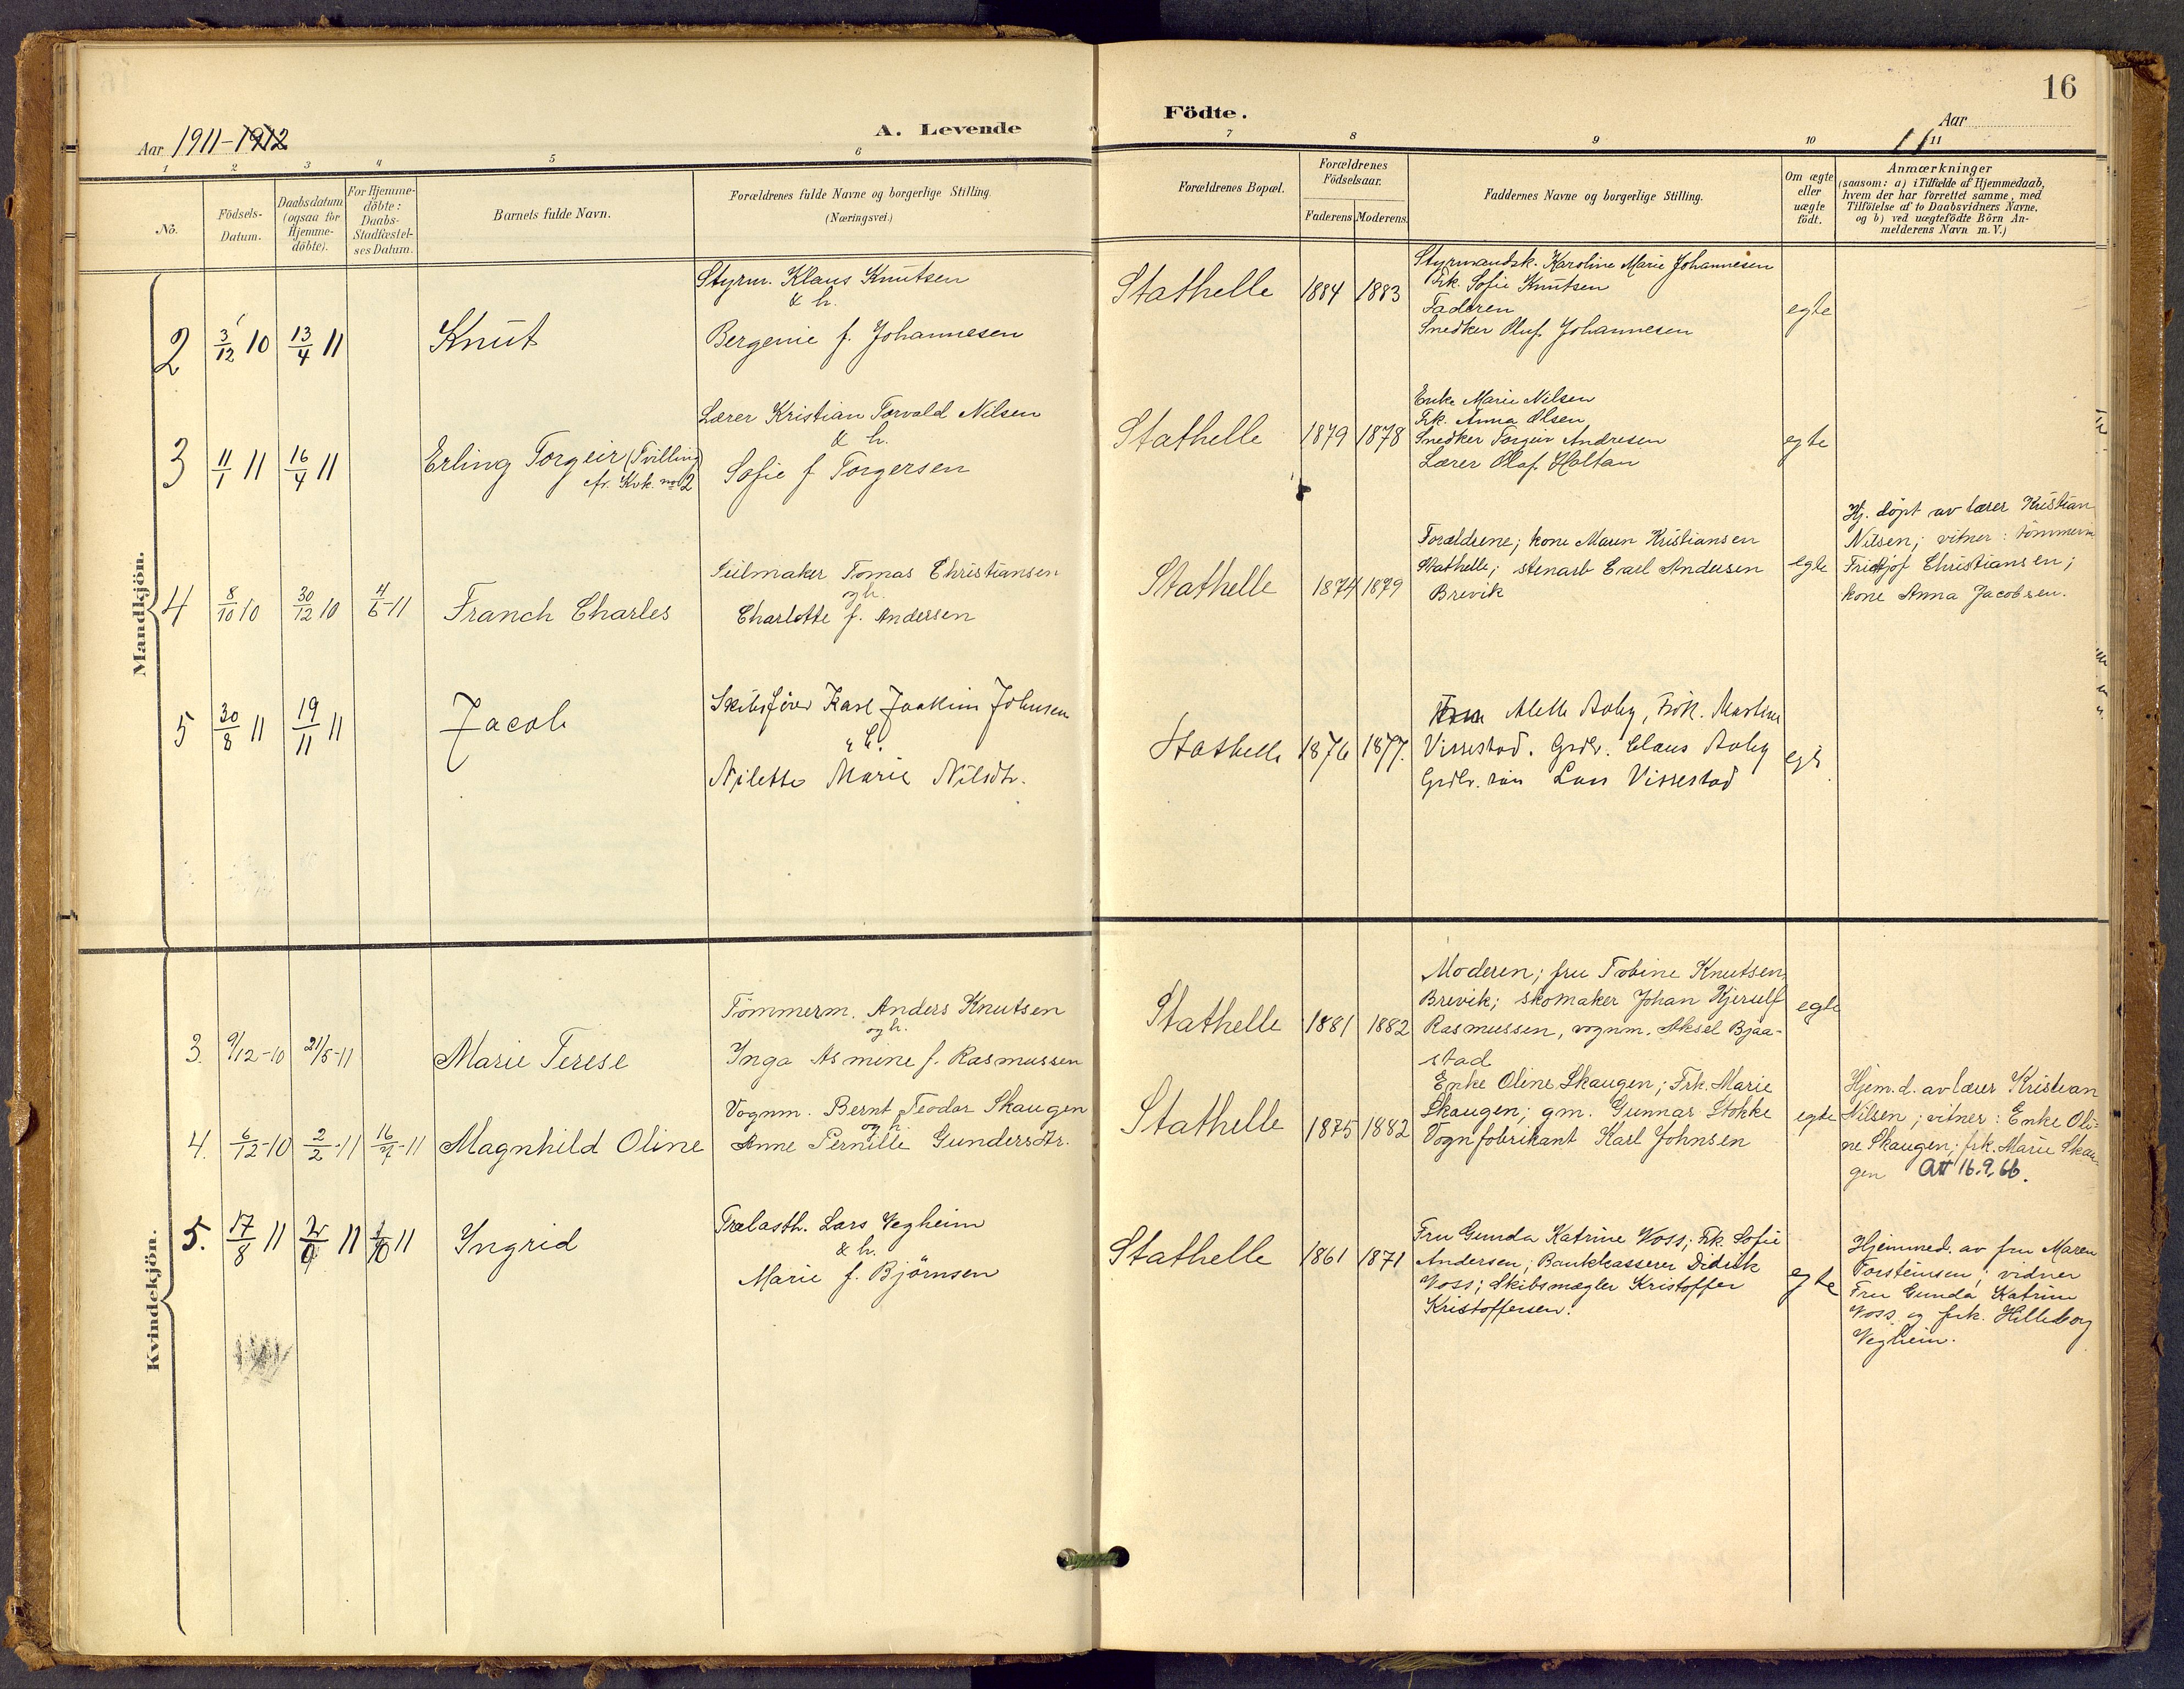 16
Aar 1911-1912
A. Levende
Födte.
Aar
11
1 2 3 4 5 6 7 8 9 10 11
No.
Födsels-
Datum.
Daabsdatum
(ogsaa for
Hjemme-
döbte).
For Hjemme-
döbte:
Daabs-
Stadfæstel-
ses Datum.
Barnets fulde Navn.
Forældrenes fulde Navne og borgerlige Stilling.
(Næringsvei.)
Forældrenes Bopæl.
Forældrenes
Födselsaar.
Faderens Moderens.
Faddernes Navne og borgerlige Stilling.
Om ægte
eller
uægte
födt.
Anmærkninger
(saasom: a) i Tilfælde af Hjemmedaab,
hvem der har forrettet samme, med
Tilföielse af to Daabsvidners Navne,
og b) ved uægtefödte Börn An-
melderens Navn m. V.)
Mandkjön.
2
3/12 10
13/4 11
Knut
Styrm. Klaus Knutsen
& h.
Bergenie f. Johannesen
Stathelle
1884
1883
Styrmandsk. Karoline Marie Johannesen
Frk. Sofie Knutsen
Faderen
Snedker Oluf Johannesen
egte
3
11/1 11
16/4 11
Erling Torgeir (Tvilling
cfr. Kvk. no 2
Lærer Kristian Torvald Nilsen
& h.
Sofie f Torgersen
Stathelle
1879
1878
Enke Marie Nilsen
Frk. Anna Olsen
Snedker Torgeir Andresen
Lærer Olaf Holtan
egte
4
8/10 10
30/12 10
4/6-11
Franch Charles
Seilmaker Tomas Christiansen
og h.
Charlotte f. Andersen
Stathelle
1874
1879
Forældrene; kone Maren Kristiansen
Stathelle; stenarb Carl Andersen
Brevik
egte
Hj. döpt av lærer Kristian
Nilsen; vitner: tömmerm
Fridtjof Christiansen;
kone Anna Jacobsen.
5
30/8 11
19/11 11
Jacob
Skibsförer Karl Joakim Johnsen
& h.
Nilette Marie Nilsdtr.
Stathelle
1876
1877.
Aletta Aaby, Frök. Martine
Vissestad. Grdbr. Claus Aaby
Grdbr. sön Lars Vissestad
egte
Kvindekjön.
3.
9/12-10
21/5-11
Marie Terese
Tömmerm. Anders Knutsen
og h.
Inga Asmine f. Rasmussen
Stathelle
1881
1882
Moderen; fru Tobine Knutsen,
Brevik; skomaker Johan Kjerulf
Rasmussen, vognm. Aksel Bjaa-
stad
egte
4.
6/12-10
2/2-11
16/4-11
Magnhild Oline
Vognm. Bernt Teodor Skaugen
og h.
Anne Pernille Gundersdtr.
Stathelle
1875
1882
Enke Oline Skaugen; Frk. Marie
Skaugen; gm. Gunnar Stokke
Vognfabrikant Karl Johnsen
egte
Hjem.d. av lærer Kristian
Nilsen; vitner: Enke Oli-
ne Skaugen; frk. Marie Skau-
gen Att 16.9.66.
5.
17/8 11
11
11
Ingrid
Trælasth. Lars Vegheim
& h.
Marie f. Björnsen
Stathelle
1861
1871
Fru Gunda Katrine Voss; Frk. Sofie
Andersen; Bankkasserer Didrik
Voss; Skibsmægler Kristoffer
Kristoffersen.
egte
Hjemmed. av fru Maren
Torsteinsen; vidner
Fru Gunda Katrine
Voss og frk. Hilleborg
Vegheim.